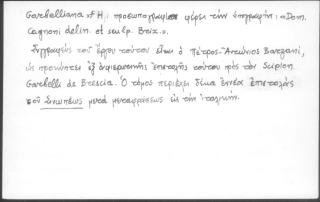 Garbelliana. «Η προσωπογραφία φέρει τὴν ἐπιγραφήν: «Dom.
Cagnoni delin. et sculp. Brix.».
Συγγραφεὺς τοῦ ἔργου τούτου εἶναι ὁ Πέτρος-Ἀντώνιος Barzani,
ὡς προκύπτει ἐξ ἀφιερωτικῆς ἐπιστολῆς τούτου πρὸς τὸν Scipion
Garbelli di Brescia. Ὁ τόμος περιέχει δέκα ἐννέα ἐπιστολὰς
τοῦ μετὰ μεταφράσεως εἰς τὴν ἰταλικήν.